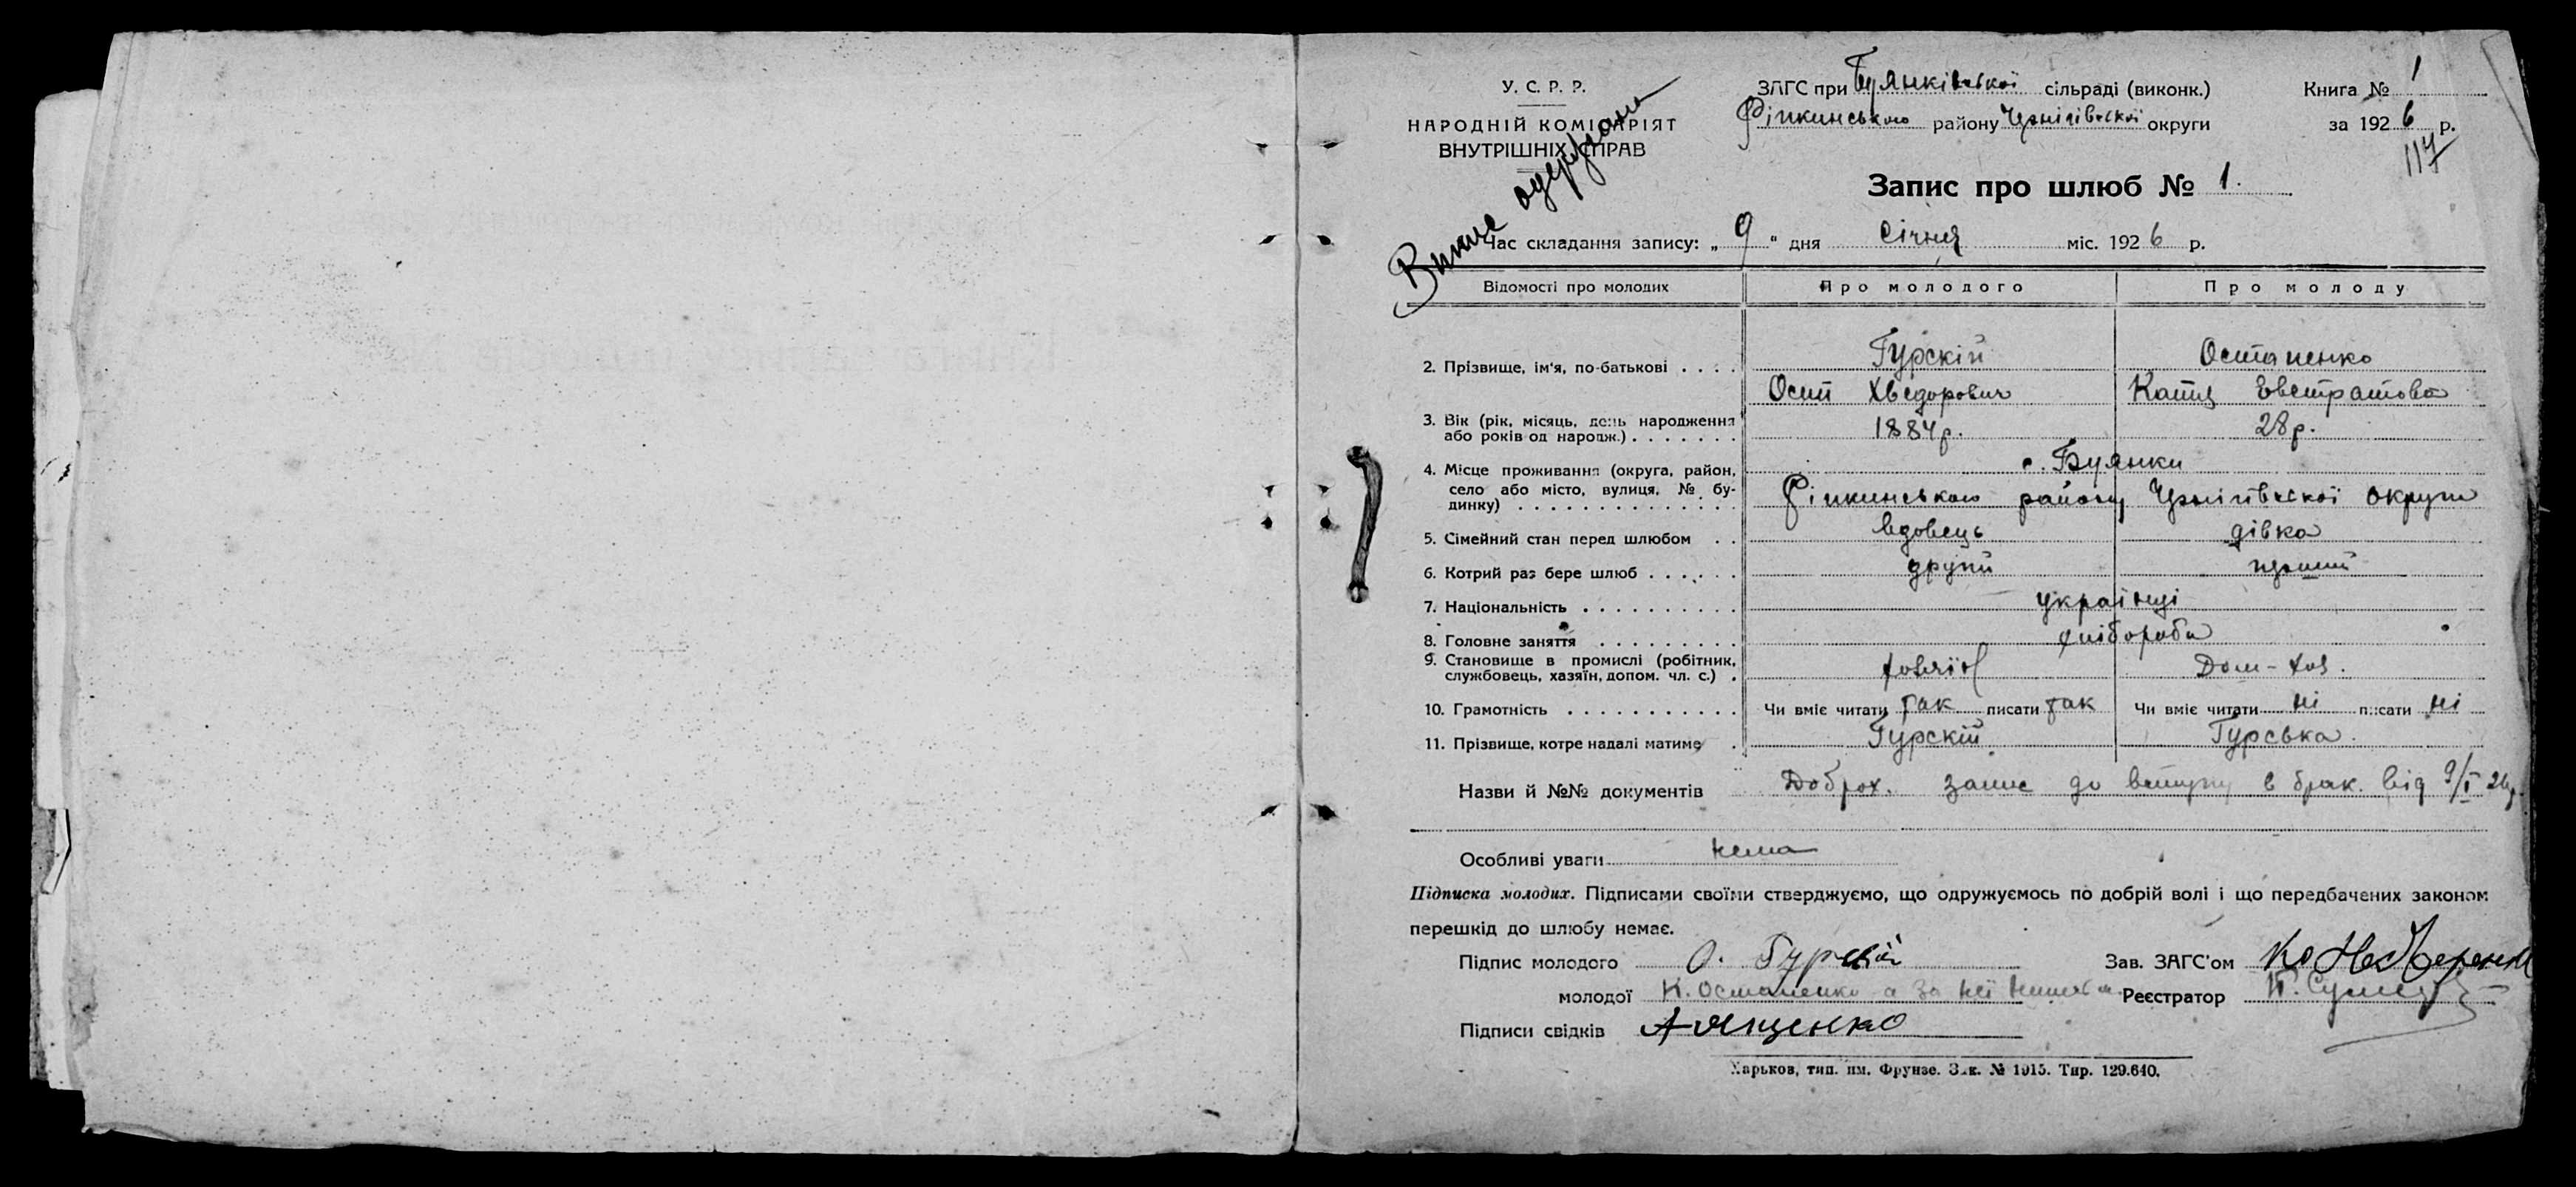 У. С. Р. Р.
НАРОДНІЙ КОМІСАРІЯТ
ВНУТРІШНІХ СПРАВ
Випис одержано
ЗАГС при Буянківської сільраді (виконк.)
Ріпкинського району Чернігівської округи
Книга № 1
за 1926 р.
117
Запис про шлюб № 1.
Час складання запису: „ 9 “ дня Січня міс. 1926 р.
Відомості про молодих Про молодого Про молоду
2. Прізвище, ім'я, по-батькові . . . . Гурскій Остапенко
Осип Хведорович Катя Евстратова
3. Вік (рік, місяць, день народження
або років од народж.) . . . . . . . 1884р. 28р.
4. Місце проживання (округа, район, с. Буянки
село або місто, вулиця, № бу-
динку) . . . . . . . . . . . . . . Ріпкинського району Чернігівської округи
5. Сімейний стан перед шлюбом . . вдовець дівка
6. Котрий раз бере шлюб . . . . . . другий перший
7. Національність . . . . . . . . . . українці
8. Головне заняття . . . . . . . . . хлібороби
9. Становище в промислі (робітник,
службовець, хазяїн, допом. чл. с.) . хозяїн Дом-хоз.
10. Грамотність . . . . . . . . . . . Чи вміє читати так писати так Чи вміє читати ні писати ні
11. Прізвище, котре надалі матиме . Гурскій Гурська.
Назви й №№ документів Доброх. запис до вступу в брак. від 9/I 26р.
Особливі уваги нема
Підписка молодих. Підписами своїми стверджуємо, що одружуємось по добрій волі і що передбачених законом
перешкід до шлюбу немає.
Підпис молодого О. Гурскій Зав. ЗАГС'ом
молодої К. Остапенко а за неї Реєстратор
Підписи свідків А Ященко
Харьков, тип. им. Фрунзе. Зак. № 1915. Тир. 129.640.